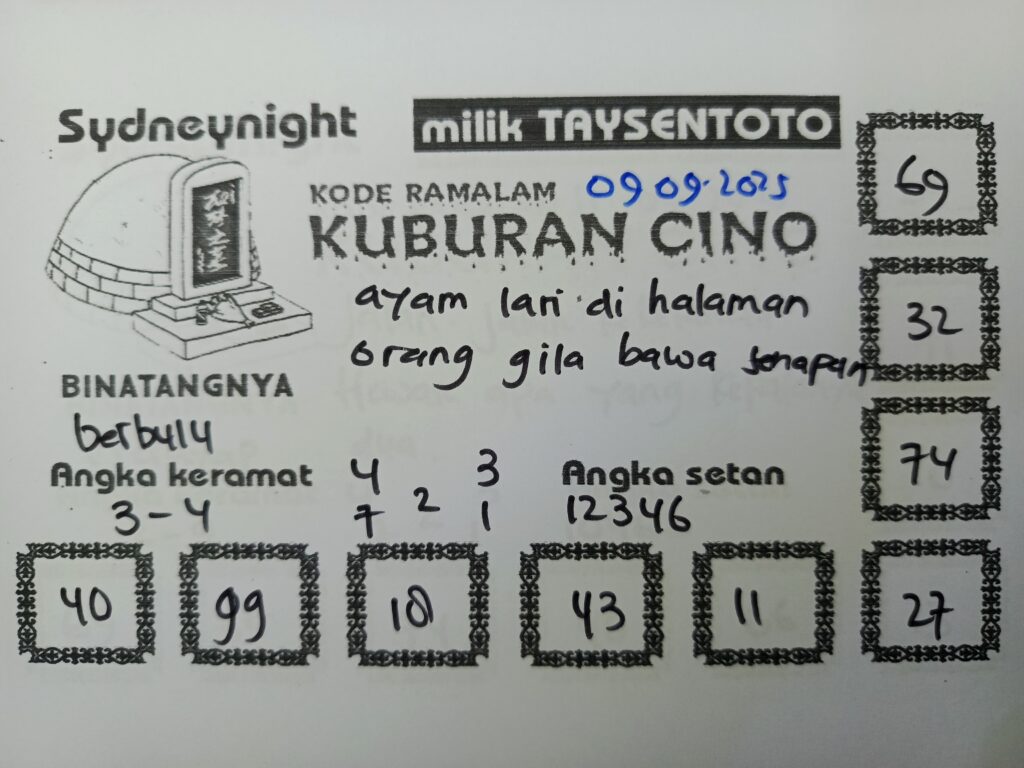 Sydneynight
milik TAYSENTOTO
69
KODE RAMALAM 09 09.2025
KUBURAN CINO
ayam lari di halaman
32
orang gila bawa senapan
BINATANGNYA
berbulu
74
Angka keramat
4 3
Angka setan
3-4
7 2 1
12346
40 99 18 43 11 27